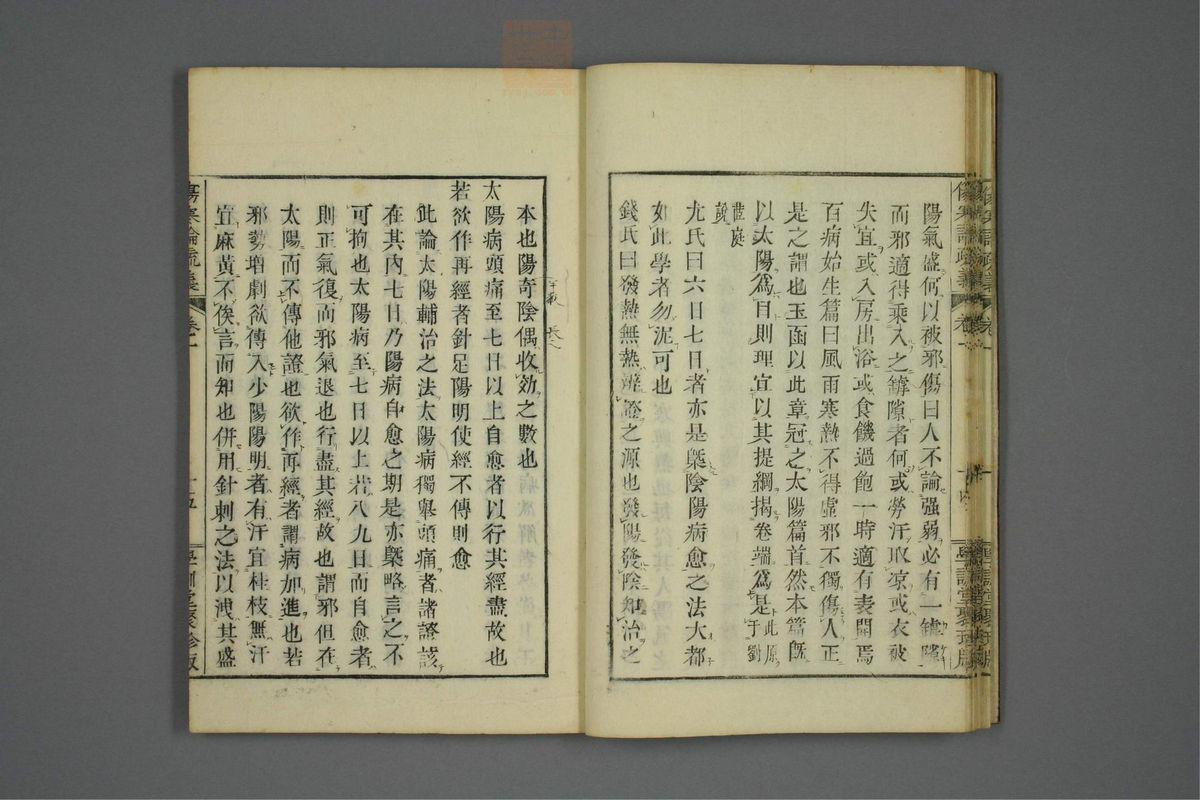 陽氣盛何以被邪傷曰人不論强弱必有一罅隙
而邪適得乘入之罅隙者何或勞汗取凉或衣被
失宜或入房出浴或食饑過飽一時適有表開焉
百病始生篇曰風雨寒熱不得虛邪不獨傷人正
是之謂也玉函以此章冠之太陽篇首然本篇既
以太陽爲目則理宜以其提綱揭卷端爲是此原于劉
茝庭說
尤氏曰六日七日者亦是槩陰陽病愈之法大都
如此學者勿泥可也
錢氏曰發熱無熱辨證之源也發陽發陰知治之
本也陽奇陰偶收効之數也
太陽病頭痛至七日以上自愈者以行其經盡故也
若欲作再經者針足陽明使經不傳則愈
此論太陽輔治之法太陽病獨舉頭痛者諸證該
在其內七日乃陽病自愈之期是亦槩略言之不
可拘也太陽病至七日以上若八九日而自愈者
則正氣復而邪氣退也行盡其經故也謂邪但在
太陽而不傳他證也欲作再經者謂病加進也若
邪勢增劇欲傳入少陽陽明者有汗宜桂枝無汗
宜麻黃不俟言而知也併用針刺之法以洩其盛
傷寒論疏義
卷一
十五
學訓堂聚珍版